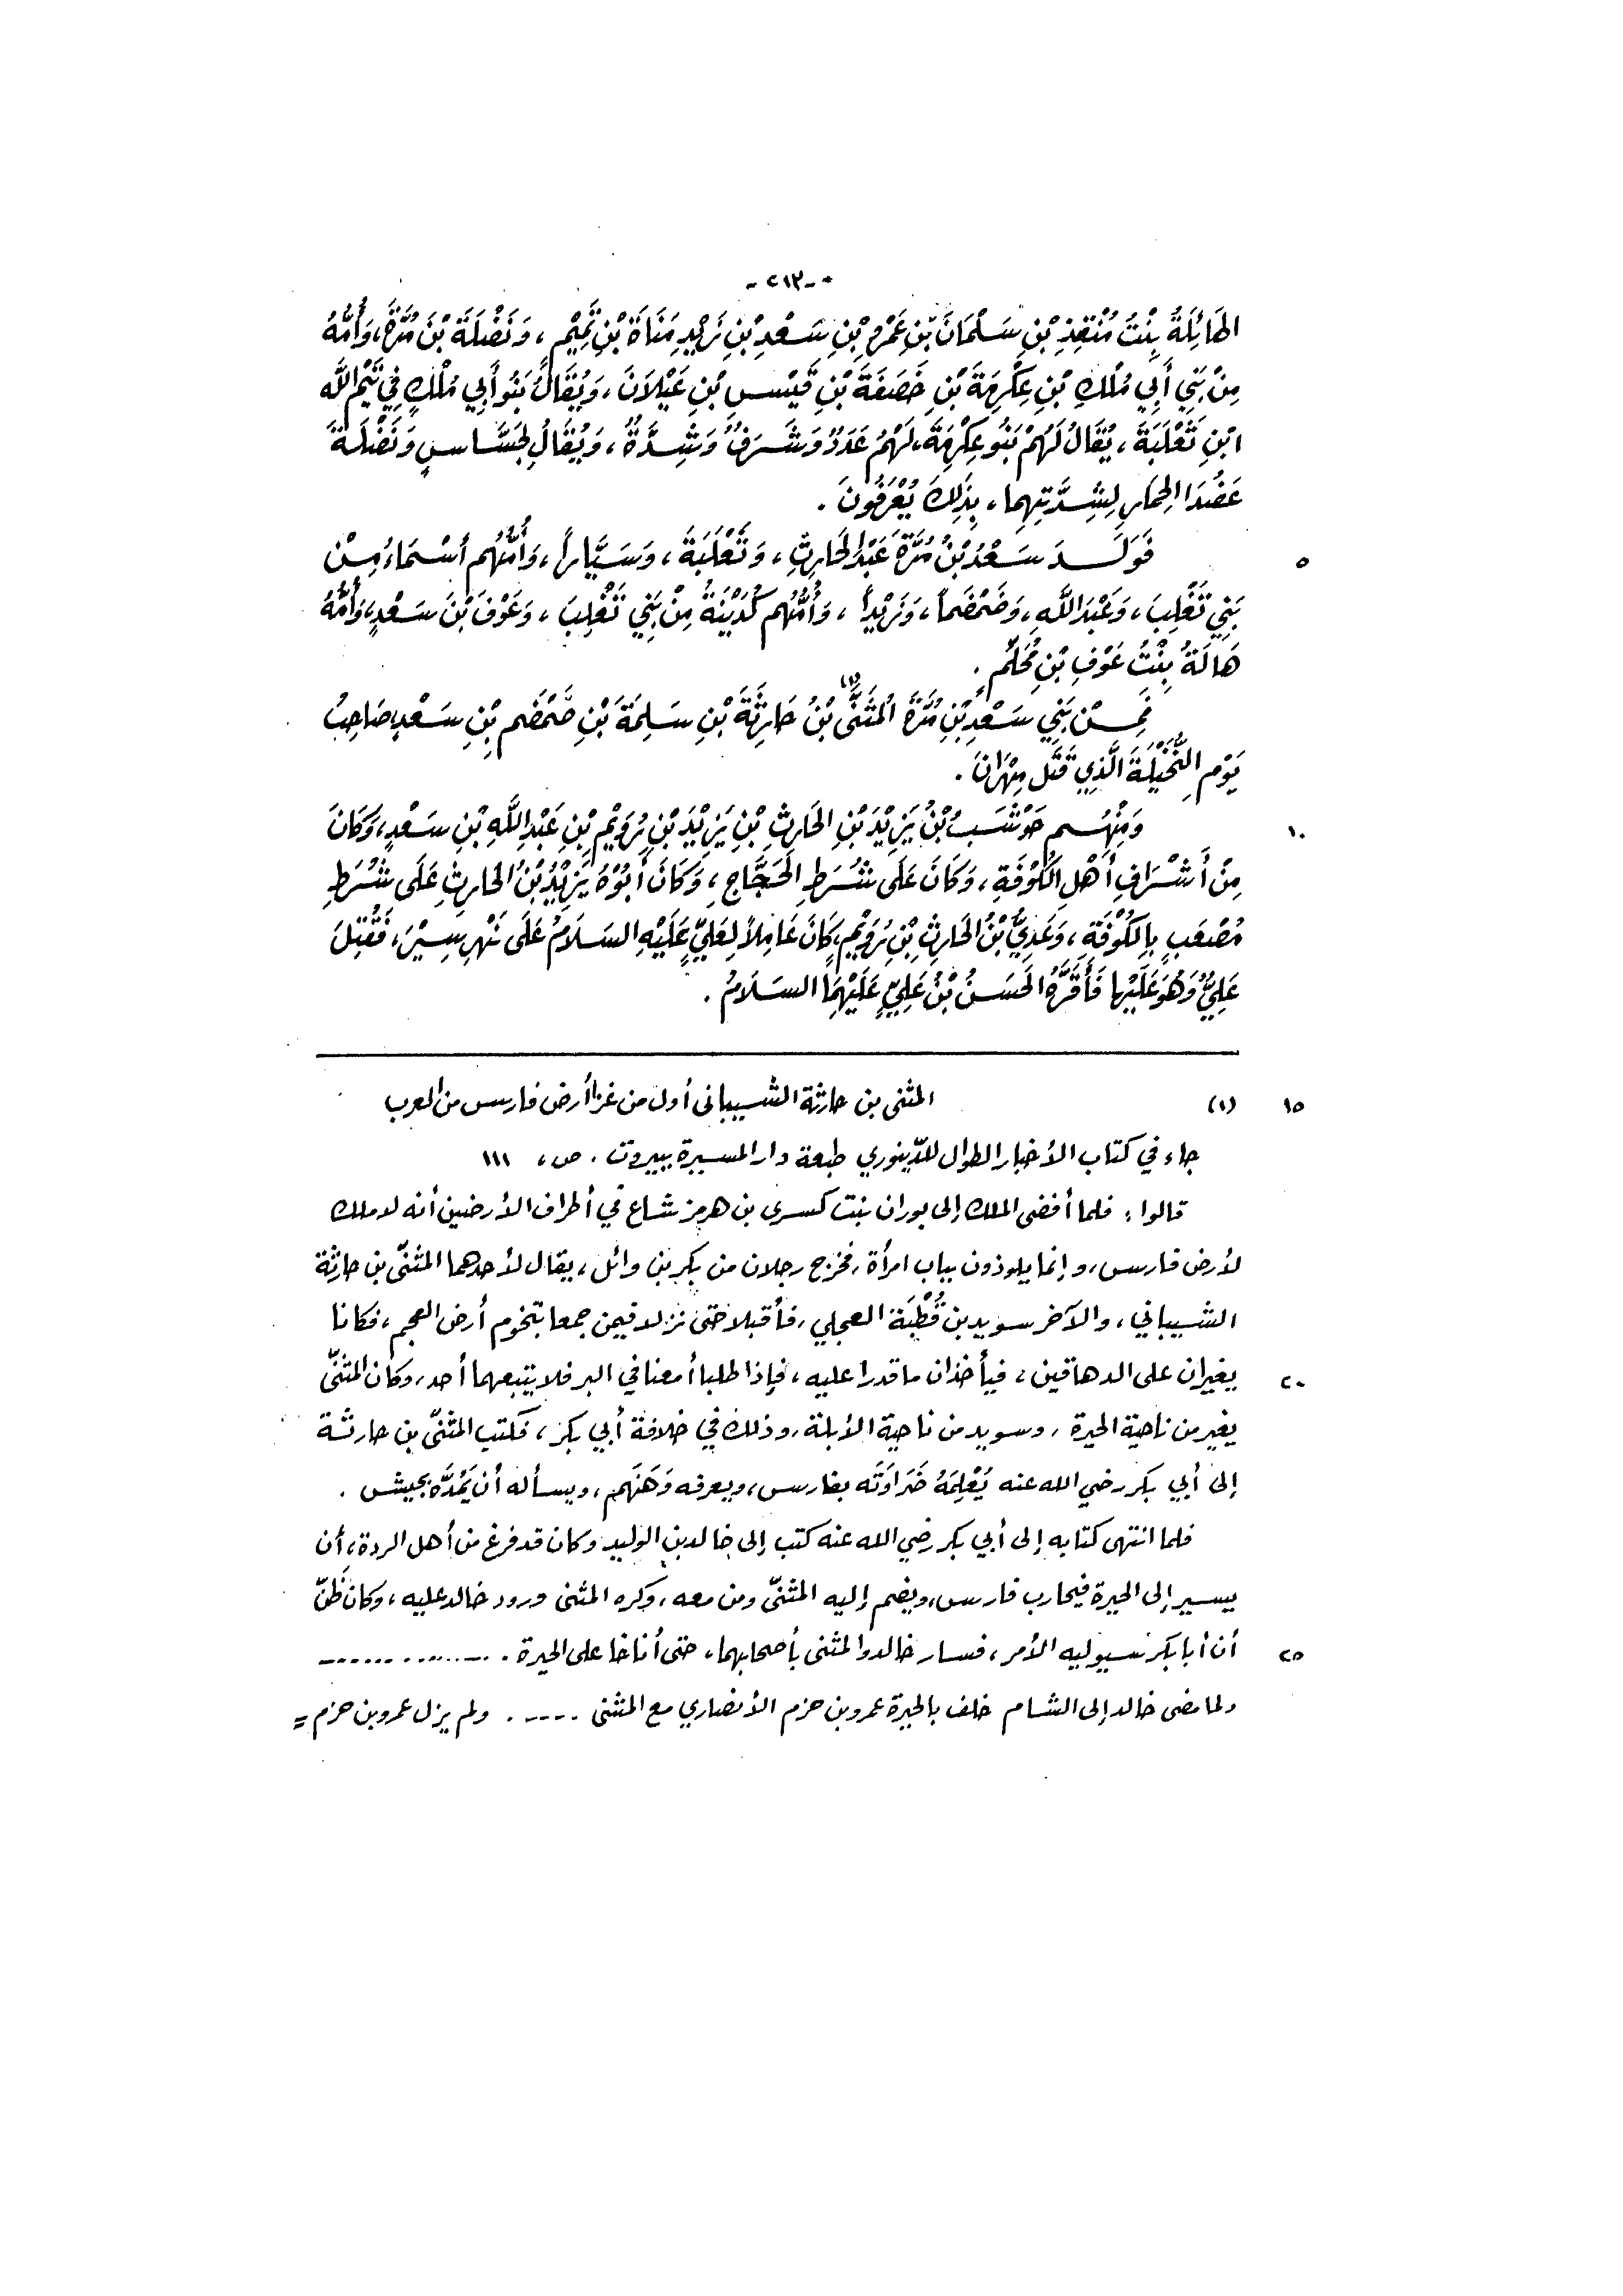 - ٢١٣ -
الهَائِلَةُ بِنْتُ مُنْقِذِ بْنِ سَلْمَانَ بْنِ عَمْرِو بْنِ سَعْدِ بْنِ زَيْدِ مَنَاةَ بْنِ تَمِيْمٍ، وَنَضْلَةَ بْنَ مُرَّةَ، وَأُمُّهُ
مِنْ بَنِي أَبِي مُلْكِ بْنِ عِكْرِمَةَ بْنِ خَصَفَةَ بْنِ قَيْسِ بْنِ عَيْلاَنَ، وَيُقَالُ بَنُو أَبِي مُلْكٍ فِي تَيْمِ اللَّه
ابْنِ ثَعْلَبَةَ، يُقَالُ لَهُمْ بَنُو عِكْرِمَةَ، لَهُمْ عَدَدٌ وَشَرَفٌ وَشِدَّةٌ، وَيُقَالُ لِجَسَّاسٍ وَنَضْلَةَ
عَضُدَا الحِمَارِ لِشِدَّتِهِما، بِذَلِكَ يُعْرَفُونَ .
٥ فَوَلَدَ سَعْدُ بْنُ مُرَّةَ عَبْدَ الحَارِثِ، وَثَعْلَبَةَ، وَسَيَّاراً، وَأُمُّهُم أَسْمَاءُ مِنْ
بَنِي تَغْلِبَ، وَعَبْدَ اللَّهِ، وَضَمْضَماً، وَزَيْداً، وَأُمُّهُم كُدَيْنَةُ مِنْ بَنِي تَغْلِبَ، وَعَوْفَ بْنَ سَعْدٍ، وَأُمُّهُ
هَالَةُ بِنْتُ عَوْفِ بْنِ مُحَلِّمٍ .
فَمِنْ بَنِي سَعْدِ بْنِ مُرَّةَ المُثَنَّى (١) بْنُ حَارِثَةَ بْنِ سَلِمَةَ بْنِ ضَمْضَمِ بْنِ سَعْدٍ صَاحِبُ
يَوْمِ النُّخَيْلَةَ الَّذِي قَتَل مِهْرَانَ .
١٠ وَمِنْهُم حَوْشَبُ بْنُ يَزِيْدَ بْنِ الحَارِثِ بْنِ يَزِيْدَ بْنِ رُوَيْمِ بْنِ عَبْدِ اللَّهِ بْنِ سَعْدٍ، وَكَانَ
مِنْ أَشْرَافِ أَهْلِ الكُوْفَةِ، وَكَانَ عَلَى شُرَطِ الحَجَّاجِ، وَكَانَ أَبُوْهُ يَزِيْدُ بْنُ الحَارِثِ عَلَى شُرَطِ
مُصْعَبٍ بِالكُوْفَةِ، وَعَدِيُّ بْنُ الحَارِثِ بْنِ رُوَيْمٍ كَانَ عَامِلاً لِعَلِيٍّ عَلَيْهِ السَلَامُ عَلَى نَهْرِ سِيْرَ، فَقُتِلَ
عَلِيٌّ وَهُوَ عَلَيْها فَأَقَرَّهُ الحَسَنُ بْنُ عَلِيٍّ عَلَيْهِمَا السَلَامُ .
١٥ (١) المثنى بن حارثة الشيباني أول من غزا أرض فارس من العرب
جاء في كتاب الأخبار الطوال للدّينوري طبعة دار المسيرة ببيروت . ص، ١١١
قالوا: فلما أفضى الملك إلى بوران بنت كسرى بن هرمز شاع في أطراف الأرضين أنه لا ملك
لأرض فارس، وإنما يلوذون بباب امرأة، فخرج رجلان من بكر بن وائل، يقال لأحدهما المثنّى بن حارثة
الشيباني، والآخر سويد بن قُطْبَة العجلي، فأقبلا حتى نزلا فيمن جمعا بتخوم أرض العجم، فكانا
٢٠ يغيران على الدهاقين، فيأخذان ما قدرا عليه، فإذا طلبا أمعنا في البر فلا يتبعهما أحد، وكان المثنّى
يغير من ناحية الحيرة، وسويد من ناحية الأبلة، وذلك في خلافة أبي بكر، فكتب المثنّى بن حارثة
إلى أبي بكر رضي الله عنه يُعْلِمَهُ ضَرَاوَتَه بفارس، ويعرفه وَهَنَهم، ويسأله أن يَمُدَّه بجيش .
فلما انتهى كتابه إلى أبي بكر رضي الله عنه كتب إلى خالد بن الوليد وكان قد فرغ من أهل الردة، أن
يسير إلى الحيرة فيحارب فارس، ويضم إليه المثنّى ومن معه، وكره المثنى ورود خالد عليه، وكان ظَنّ
٢٥ أن أبا بكر سيوليه الأمر، فسار خالد والمثنى بأصحابهما، حتى أناخا على الحيرة . ...............
ولما مضى خالد إلى الشام خلف بالحيرة عمرو بن حزم الأنصاري مع المثنى ..... ولم يزل عمرو بن حزم =